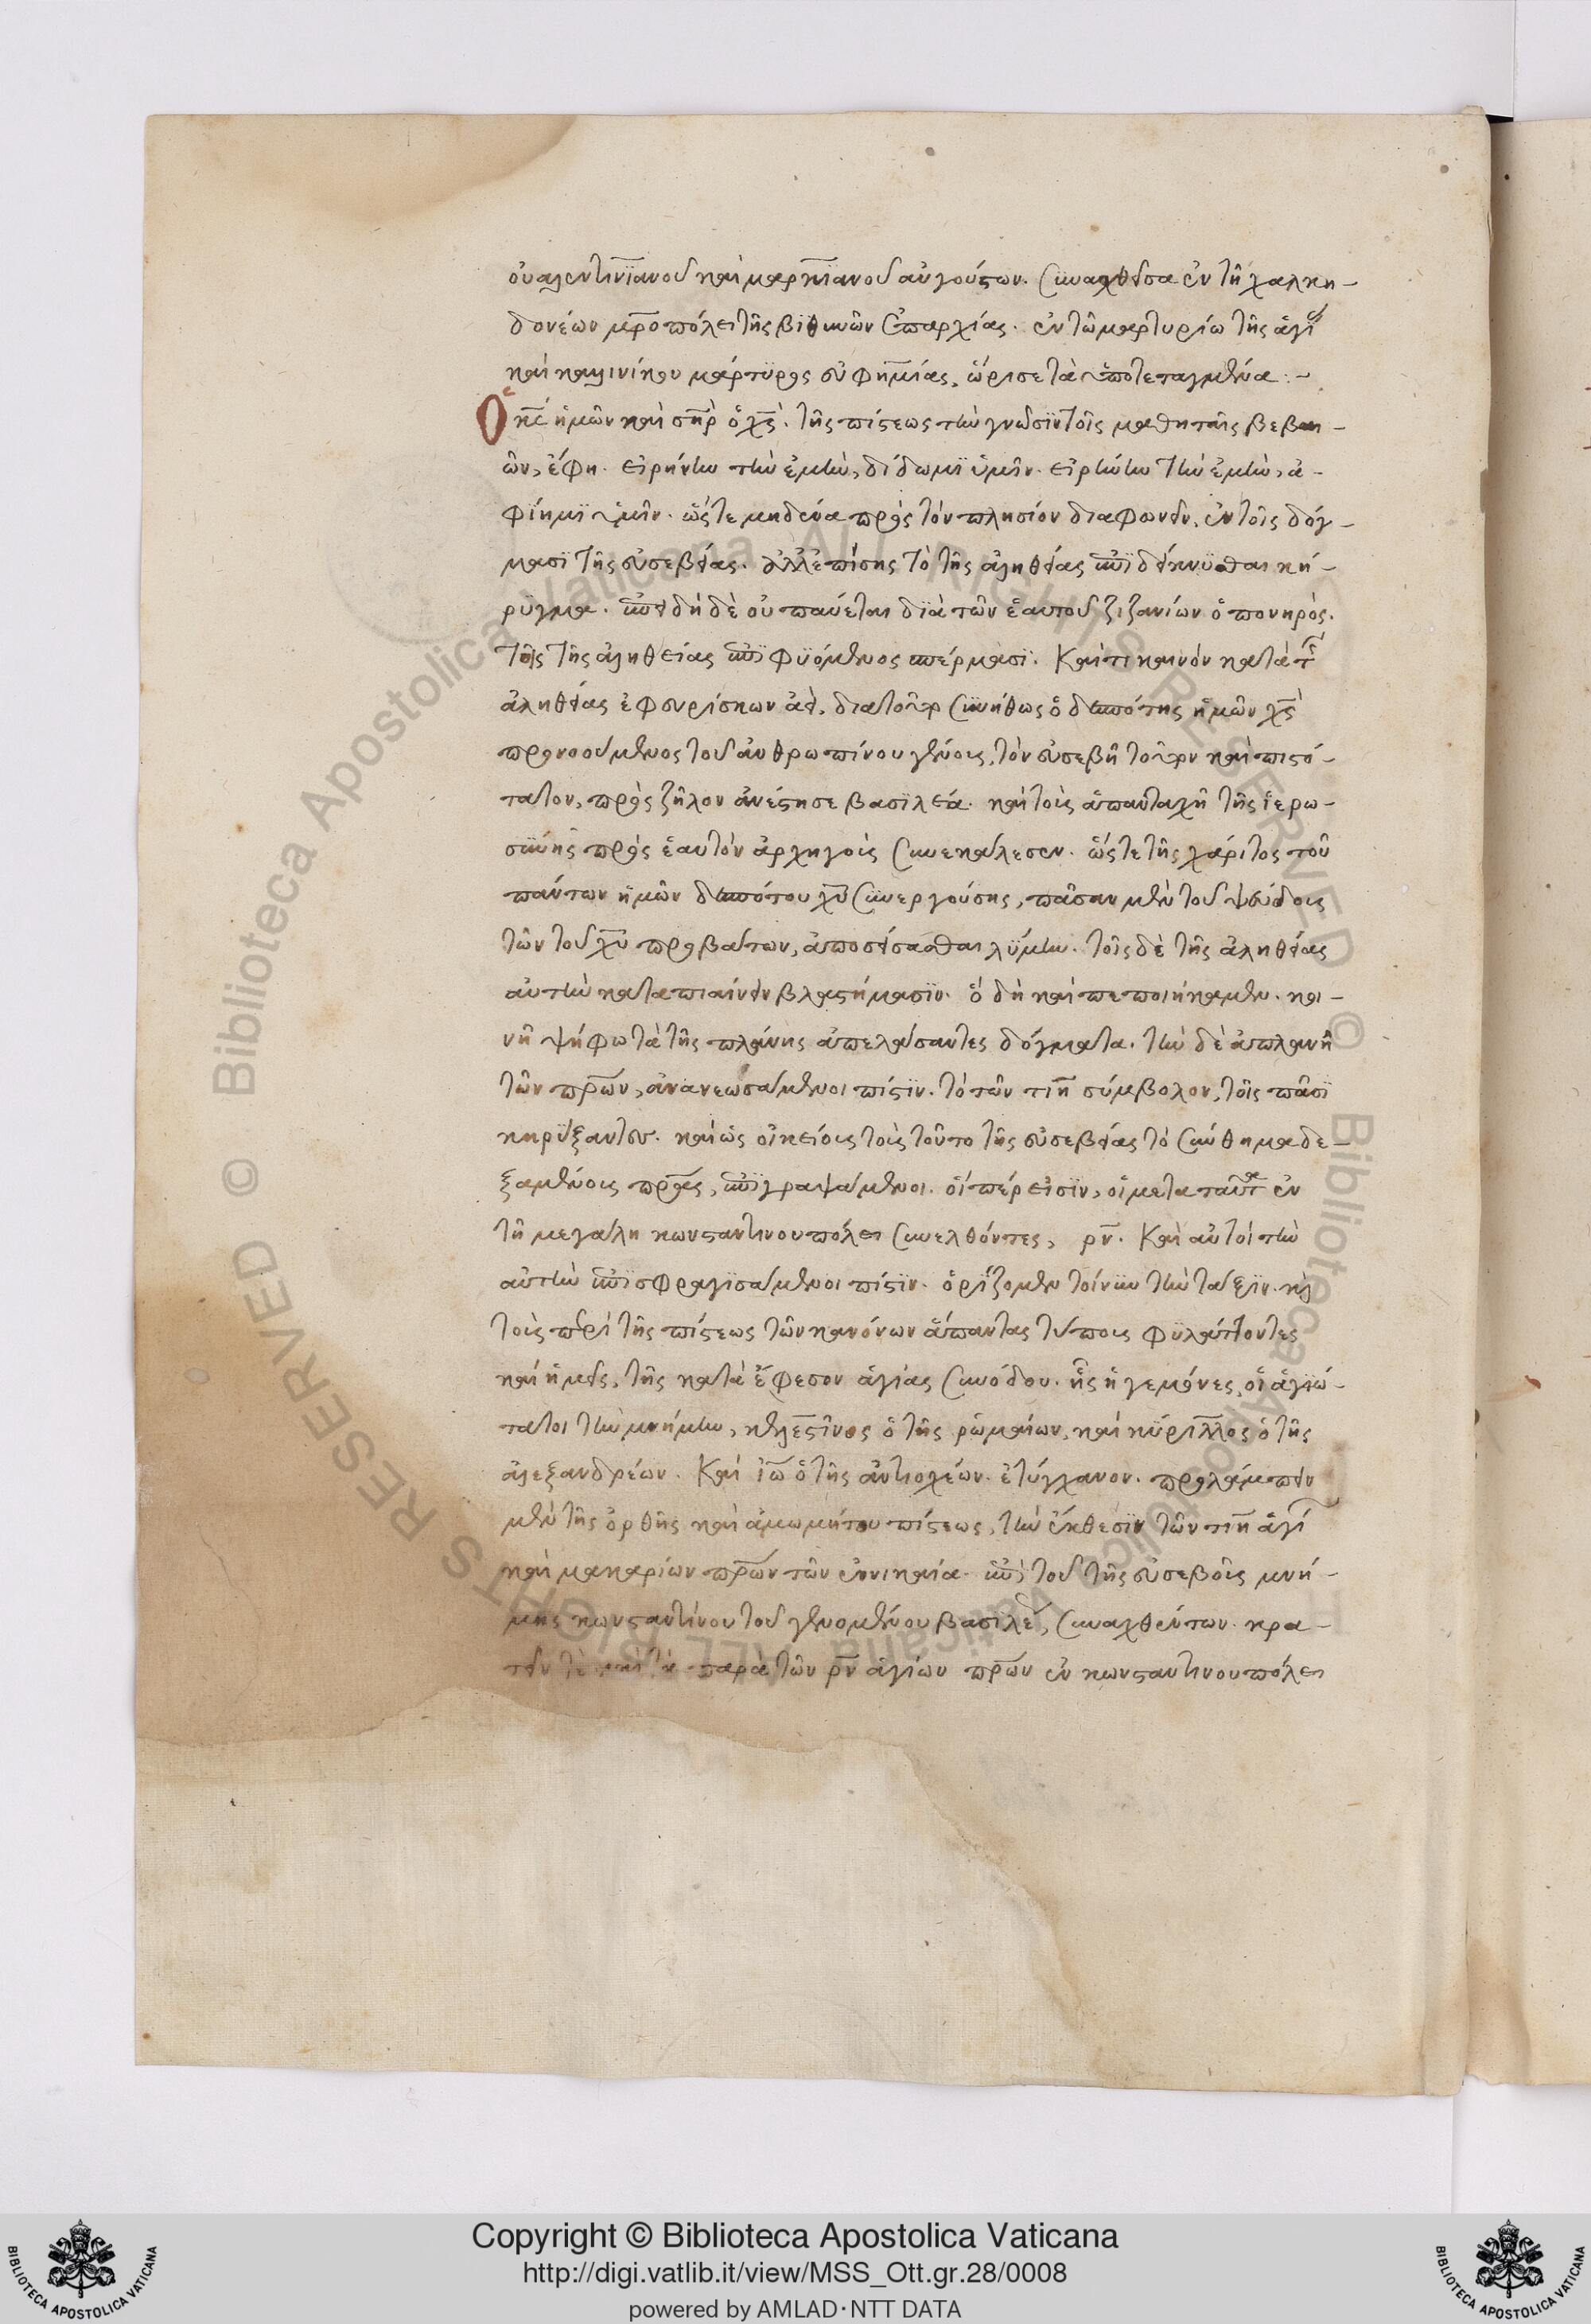 οὐαλεντινϊανοῦ καὶ μαρκϊανοῦ αὐγούστων. συναχθεῖσα ἐν τῆ χαλκη-
δονέων μρ̅οπόλει τῆς βϊθυνῶν ἐπαρχίας. ἐν τῶ μαρτυρίω τῆς ἁγί
καὶ καλλινίκου μάρτϋρος εὐφημίας, ὥρισε τὰ ὑποτεταγμένα:-
Ὁ κ̅ς ἡμῶν καὶ σ̅ηρ ὁ χ̅ς. τῆς πίστεως τὴν γνῶσϊν τοῖς μαθηταῖς βεβαι-
ῶν, ἔφη. εἰρήνην τὴν ἐμὴν, δίδωμϊ ὑμῖν. εἰρήνην τὴν ἐμὴν, ἀ-
φίημϊ ὑμῖν. ὥστε μηδένα πρὸς τὸν πλησίον διαφωνεῖν, ἐν τοῖς δόγ-
μασϊ τῆς εὐσεβείας. ἀλλ' ἐπίσης τὸ τῆς ἀληθείας ἐπιδείκνϋσθαι κή-
ρϋγμα. ἐπειδὴ δὲ οὐ παύεται δϊὰ τῶν ἑαυτοῦ ζιζανίων ὁ πονηρὸς.
τοῖς τῆς ἀληθείας ἐπιφϋόμενος σπέρμασϊ. Καί τι καινὸν κατὰ τῆς
ἀληθείας ἐφευρίσκων ἀεὶ. διατοῦτο συνήθως ὁ δεσπότης ἡμῶν χ̅ς
προνοούμενος τοῦ ἀνθρωπίνου γένους, τὸν εὐσεβῆ τοῦτον καὶ πιστό-
τατον, πρὸς ζῆλον ἀνέστησε βασϊλέα. καὶ τοὺς ἁπανταχῆ τῆς ἱερω-
σύνης πρὸς ἑαυτὸν ἀρχηγοὺς συνεκάλεσεν. ὥστε τῆς χάριτος τοῦ
πάντων ἡμῶν δεσπότου χ̅υ συνεργούσης, πᾶσαν μὲν τοῦ ψεύδους
τῶν τοῦ χ̅υ προβάτων, ἀποσείσασθαι λϋμην. τοῖς δὲ τῆς ἀληθείας
αὐτὴν καταπιαίνειν βλαστήμασϊν. ὃ δὴ καὶ πεποιήκαμεν. κοι-
νῆ ψήφω τὰ τῆς πλάνης ἀπελάσαντες δόγματα. τὴν δὲ ἀπλανῆ
τῶν πρ̅ων, ἀνανεωσάμενοι πίστϊν. τὸ τῶν τιη̅ σύμβολον, τοῖς πᾶσϊ
κηρύξαντες. καὶ ὡς οἰκείους τοὺς τοῦτο τῆς εὐσεβείας τὸ σύνθημα δε-
ξαμένους πρ̅ας, ἐπιγραψάμενοι. οἵπέρ εἰσϊν, οἱ μετα ταῦτα ἐν
τῆ μεγάλη κωνσταντινουπόλει συνελθόντες, ρν̅. Καὶ αὐτοὶ τὴν
αὐτὴν ἐπισφραγϊσάμενοι πίστϊν. ὁρίζομεν τοίνυν τὴν τάξϊν. καὶ
τοὺς περὶ τῆς πίστεως τῶν κανόνων ἅπαντας τύπους φϋλάττοντες
καὶ ἡμεῖς, τῆς κατὰ ἔφεσον ἁγίας συνόδου. ἧς ἡγεμόνες, οἱ ἁγϊώ-
τατοι τὴν μνήμην, κελεστῖνος ὁ τῆς ῥωμαίων, καὶ κϋριλλος ὁ τῆς
ἀλεξανδρέων. Καὶ ἰω̅ ὁ τῆς ἀντιοχέων. ἐτύγχανον. προλάμπειν
μὲν τῆς ὀρθῆς καὶ ἀμωμήτου πίστεως, τὴν ἔκθεσϊν τῶν τιη̅ ἁγί
καὶ μακαρίων πρ̅ων τῶν ἐν νικαία. ἐπὶ τοῦ τῆς εὐσεβοῦς μνή-
μης κωνσταντίνου τοῦ γενομένου βασιλέ, συναχθέντων. κρα-
τεῖν δὲ καὶ τὰ παρὰ τῶν ρν̅ ἁγίων πρ̅ων ἐν κωνσταντινουπόλει
Copyright © Biblioteca Apostolica Vaticana
http://digi.vatlib.it/view/MSS_Ott.gr.28/0008
powered by AMLAD·NTT DATA
BIBLIOTECA APOSTOLICA VATICANA
BIBLIOTECA APOSTOLICA VATICANA
© Biblioteca Apostolica Vaticana ALL RIGHTS RESERVED
© Biblioteca Apostolica Vaticana ALL RIGHTS RESERVED